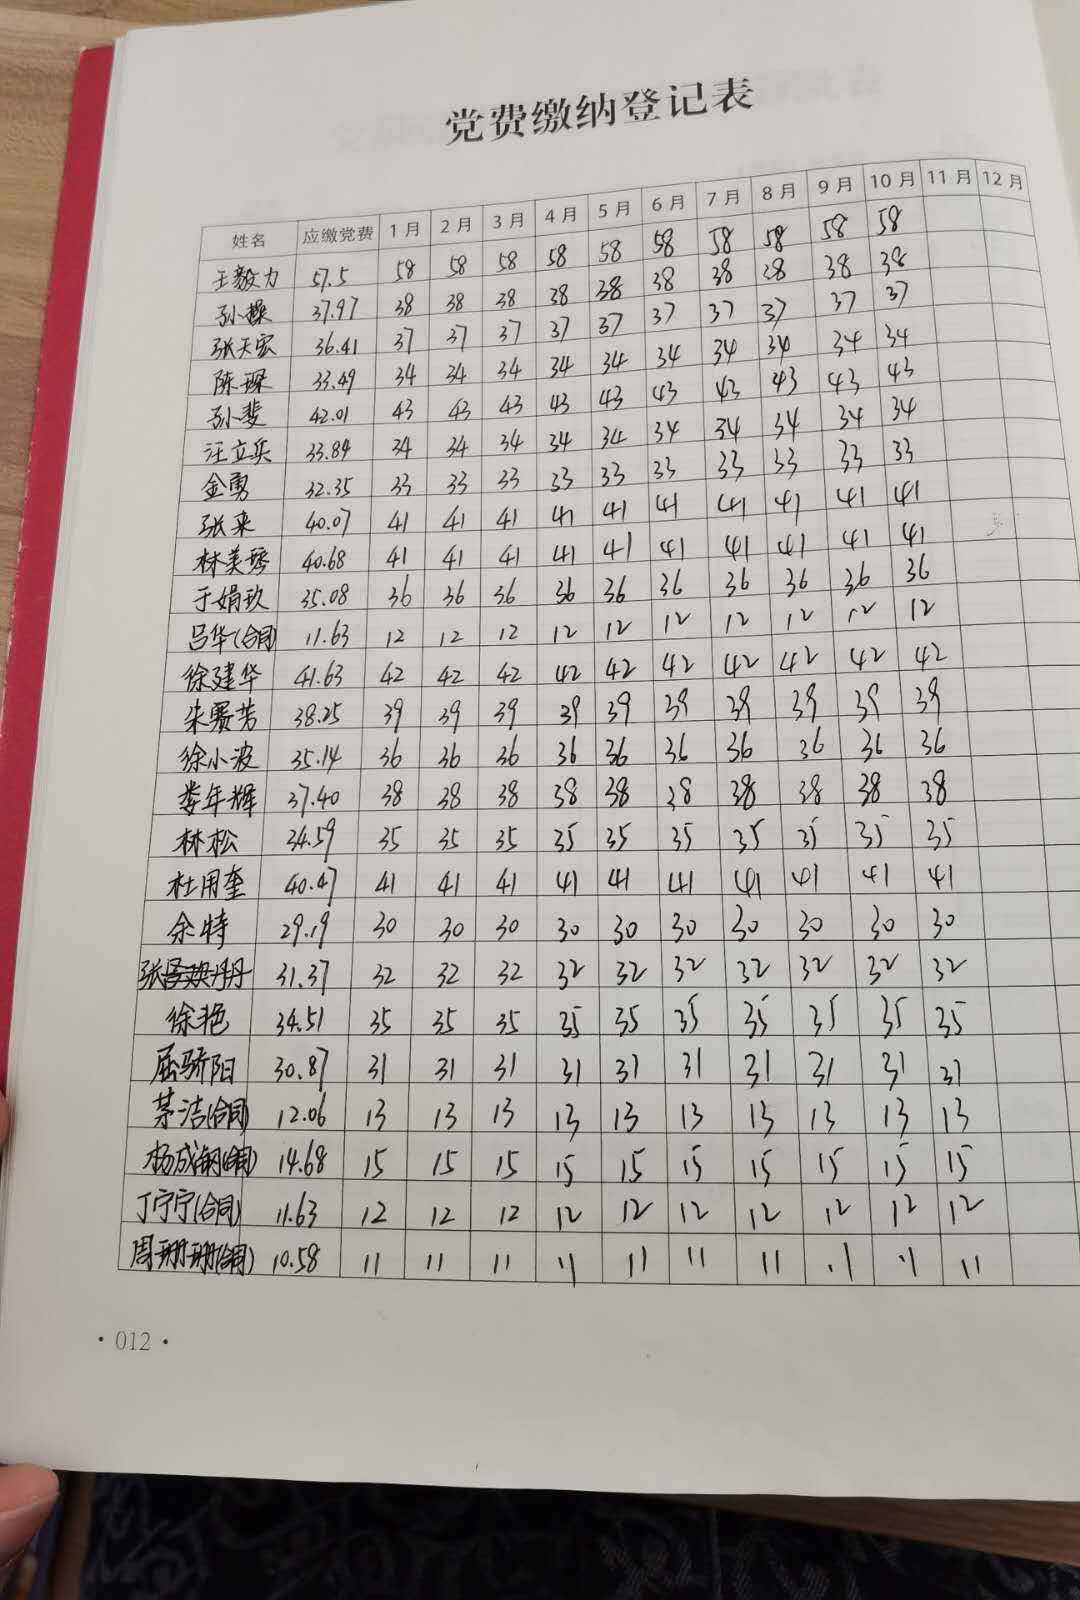 党费缴纳登记表
姓名 应缴党费 1月 2月 3月 4月 5月 6月 7月 8月 9月 10月 11月 12月
王毅力 57.5 58 58 58 58 58 58 58 58 58 58
孙操 37.97 38 38 38 38 38 38 38 38 38 38
张天宏 36.41 37 37 37 37 37 37 37 37 37 37
陈琛 33.49 34 34 34 34 34 34 34 34 34 34
孙斐 42.01 43 43 43 43 43 43 43 43 43 43
汪立兵 33.84 34 34 34 34 34 34 34 34 34 34
金勇 32.35 33 33 33 33 33 33 33 33 33 33
张来 40.07 41 41 41 41 41 41 41 41 41 41
林美琴 40.68 41 41 41 41 41 41 41 41 41 41
于娟玖 35.08 36 36 36 36 36 36 36 36 36 36
吕华(合同) 11.63 12 12 12 12 12 12 12 12 12 12
徐建华 41.63 42 42 42 42 42 42 42 42 42 42
朱赛芳 38.25 39 39 39 39 39 39 39 39 39 39
徐小波 35.14 36 36 36 36 36 36 36 36 36 36
娄年辉 37.40 38 38 38 38 38 38 38 38 38 38
林松 34.59 35 35 35 35 35 35 35 35 35 35
杜用奎 40.47 41 41 41 41 41 41 41 41 41 41
余特 29.19 30 30 30 30 30 30 30 30 30 30
张丹丹 31.37 32 32 32 32 32 32 32 32 32 32
徐艳 34.51 35 35 35 35 35 35 35 35 35 35
屈骄阳 30.87 31 31 31 31 31 31 31 31 31 31
茅洁(合同) 12.06 13 13 13 13 13 13 13 13 13 13
杨成钢(合同) 14.68 15 15 15 15 15 15 15 15 15 15
丁宁宁(合同) 11.63 12 12 12 12 12 12 12 12 12 12
周珊珊(合同) 10.58 11 11 11 11 11 11 11 11 11 11
·012·